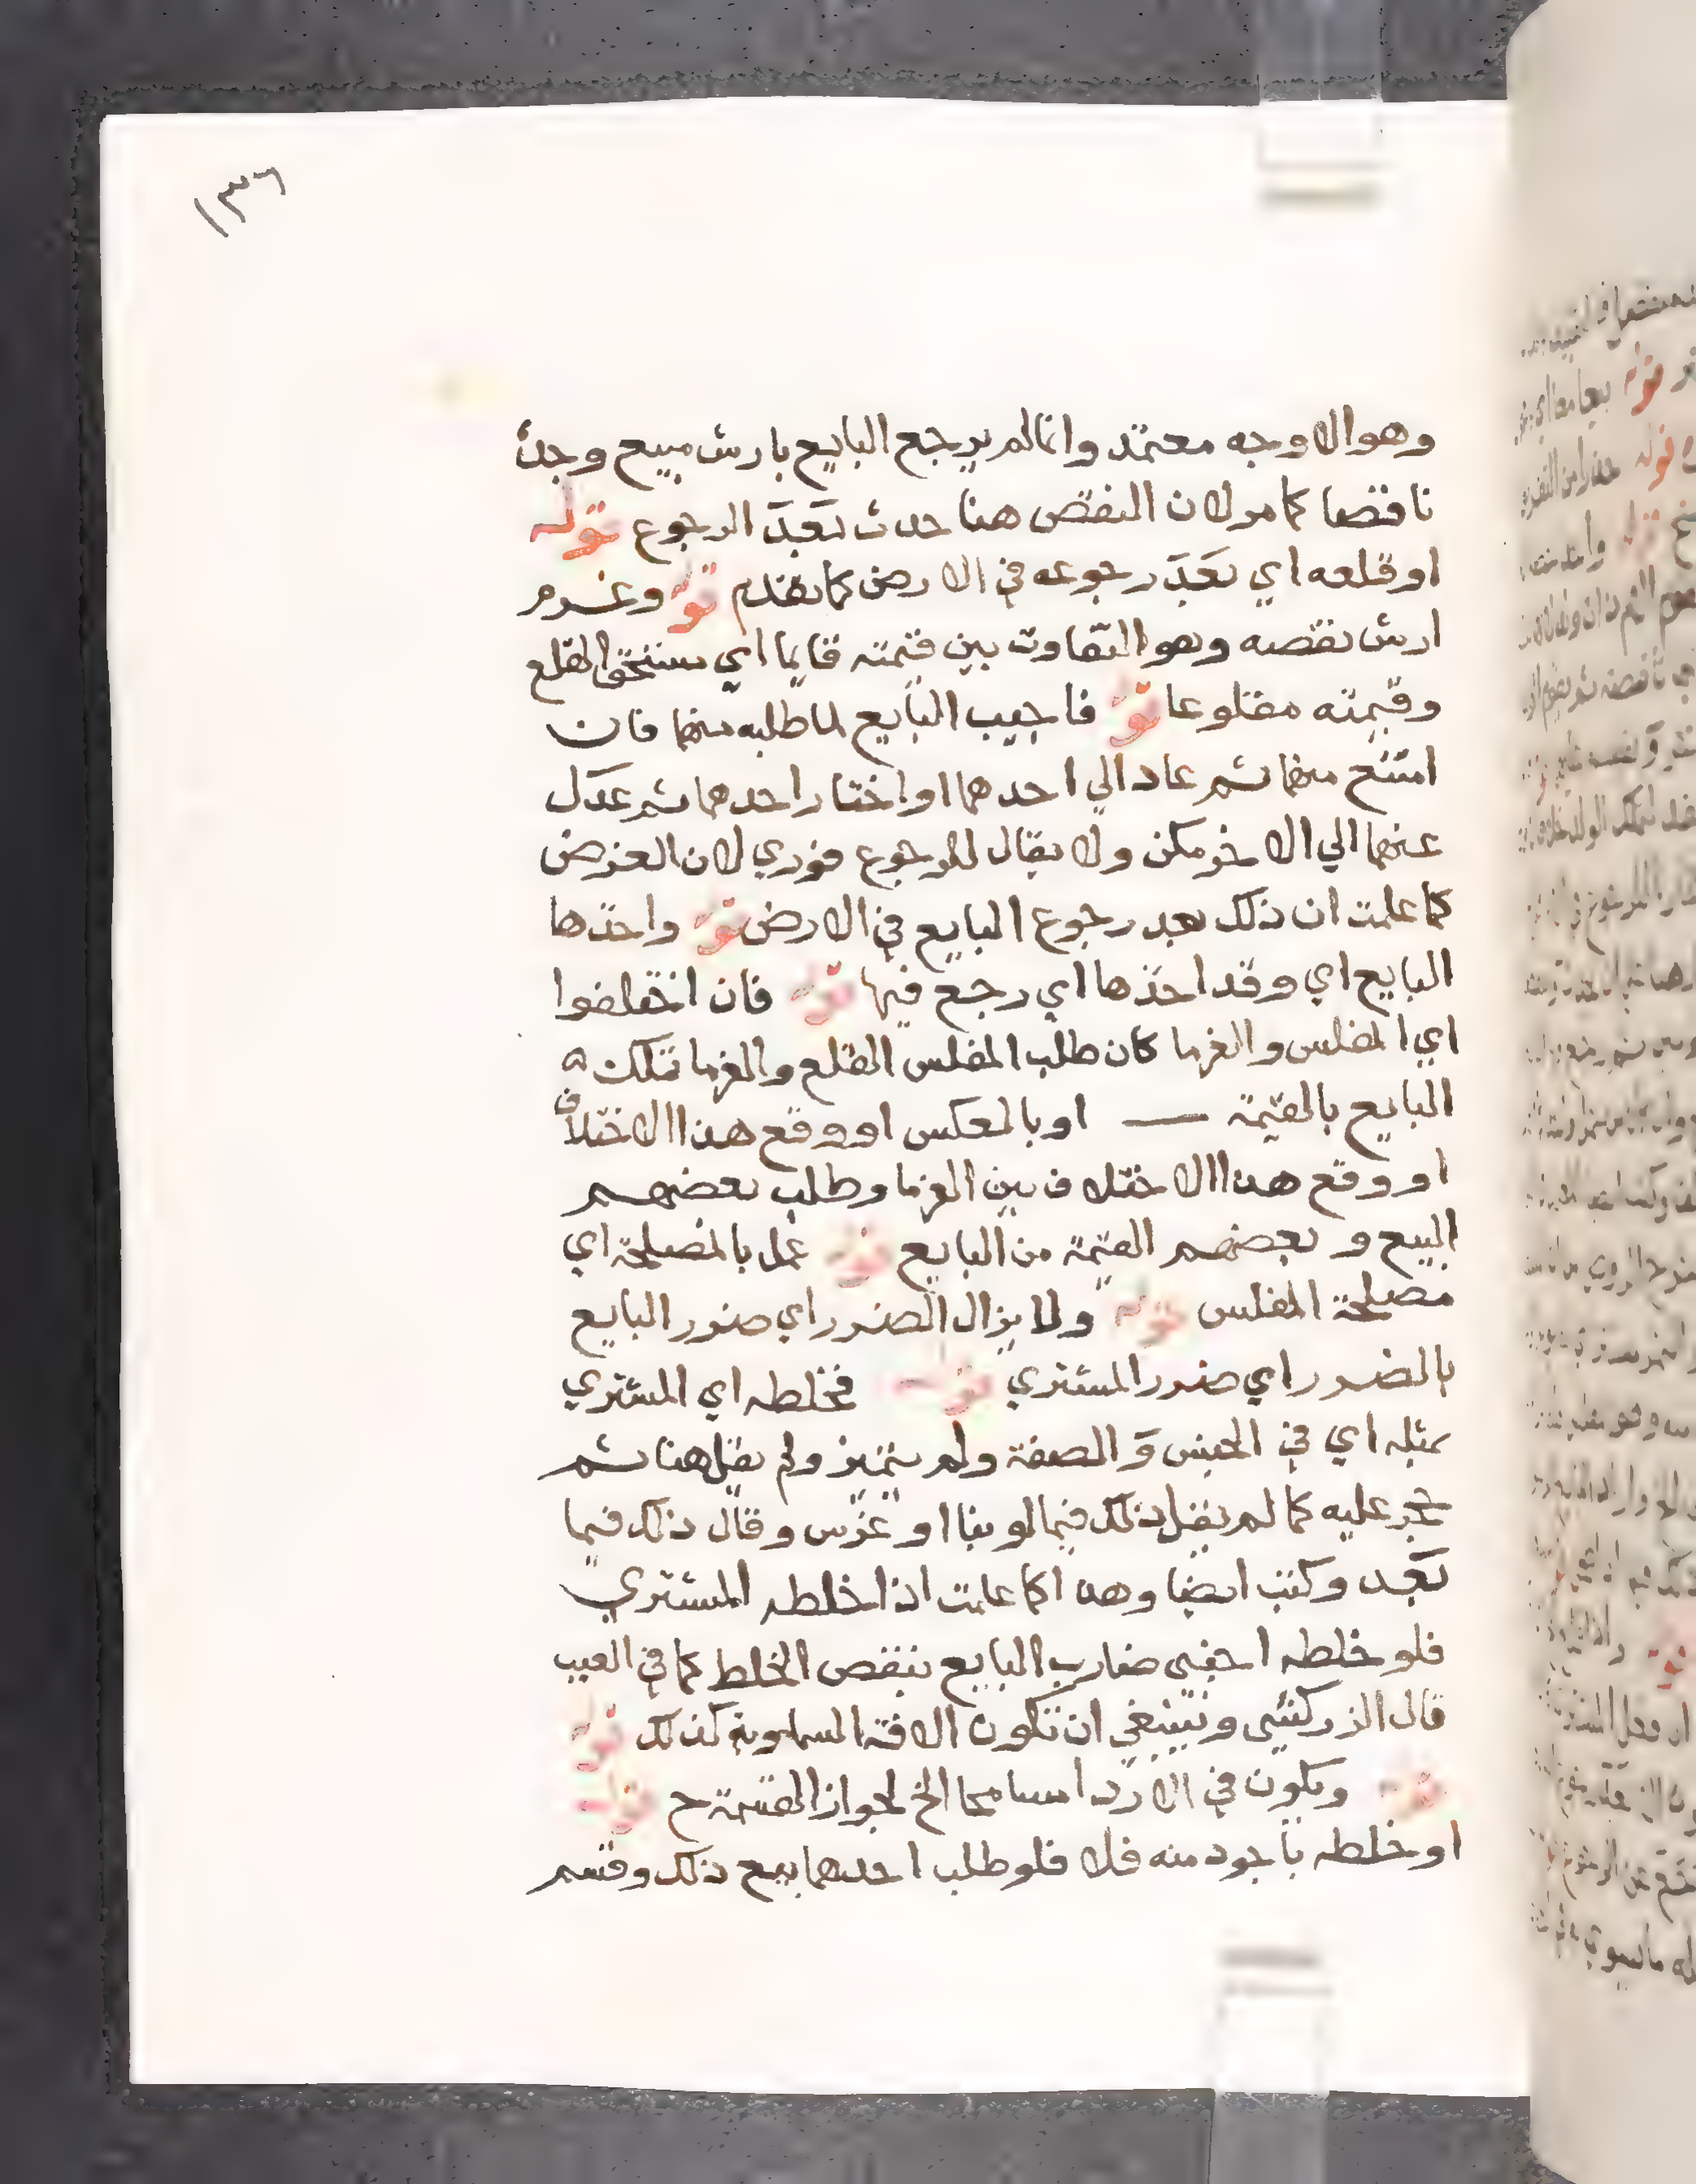 ١٣٦
وهو الاوجه معتمد وانما لم يرجع البايع بارش مبيع وجده
ناقصا كما مر لان النقص هنا حدث بعد الرجوع قوله
او قلعه اي بعد رجوعه في الارض كما تقدم قوله وغرم
ارش نقصه وهو التفاوت بين قيمته قايما اي مستحق القلع
وقيمته مقلوعا قوله فاجيب البايع لما طلبه منهما فان
امتنع منهما ثم عاد الي احدهما او اختار احدهما ثم عدل
عنهما الي الاخر مكن ولا يقال للرجوع فوري لان الغرض
كما علمت ان ذلك بعد رجوع البايع في الارض قوله واخذها
البايع اي وقد اخذها اي رجع فيها قوله فان اختلفوا
اي المفلس والغرما كان طلب المفلس القلع والغرما تملك ه
البايع بالقيمة او بالعكس او وقع هذا الاختلاف
او وقع هذا الاختلاف بين الغرما وطلب بعضهم
البيع وبعضهم القيمة من البايع قوله عمل بالمصلحة اي
مصلحة المفلس قوله ولا يزال الضرر اي ضرر البايع
بالضرر اي ضرر المشتري قوله فخلطه اي المشتري
بمثله اي في الجنس والصفة ولم يتميز ولم يقل هنا ثم
حجر عليه كما لم يقل ذلك فيما لو بنا او غرس وقال ذلك فيما
بعد وكتب ايضا وهذا كما علمت اذا خلطه المشتري
فلو خلطه اجنبي ضارب البايع بنقص الخلط كما في العيب
قال الزركشي وينبغي ان تكون الافة السماوية كذلك قوله
قوله ويكون في الاردا مسامحا الخ لجواز القسمة ح قوله
او خلطه باجود منه فلا فلو طلب احدهما بيع ذلك وقسم